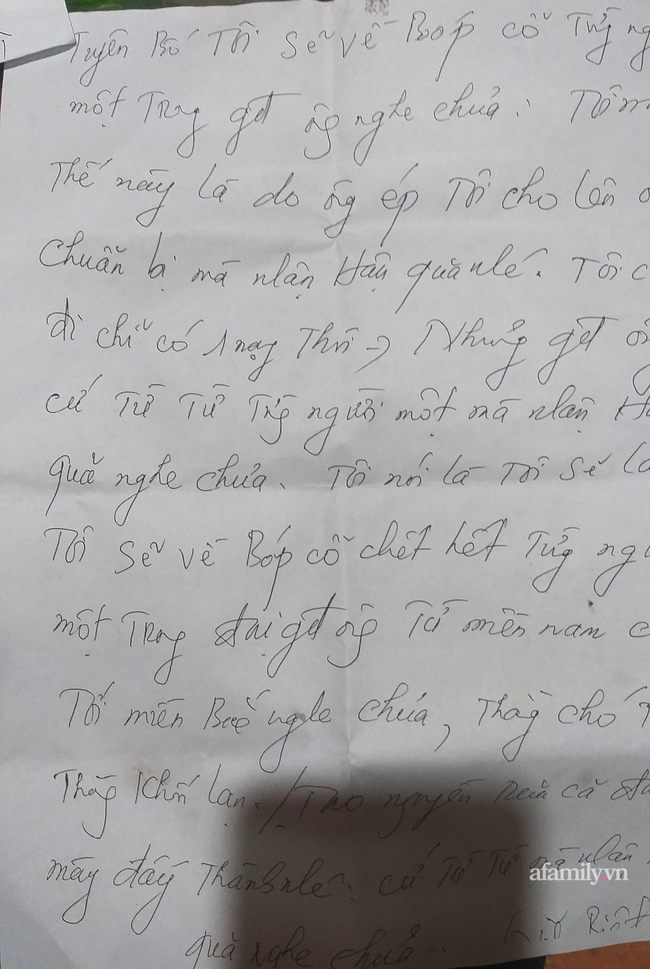 Tuyên Bố Tôi Sẽ về Bóp cỗ Từng ng
một Trong gđ ông nghe chửa. Tôi
Thế này là do ông ép Tôi cho lên
chuẩn bị mà nhận Hậu quả nhé. Tôi c
đi chỉ có 1 mạg Thôi Nhưng gđ ôg
cứ Từ Từ Từg người một mà nhận H
quả nghe chửa. Tôi nói là Tôi Sẽ là
Tôi Sẽ về Bóp cỗ chết hết Từg ngư
một Trong đại gđ ông Từ miền nam c
Tới miền Bắc nghe chửa, Thằg chó
Thằg Khốn lạn. Tao nguyền rủa cả đ
mày đấy Thành nhé. cứ Từ Từ mà nhận
quả nghe chửa.
afamily.vn